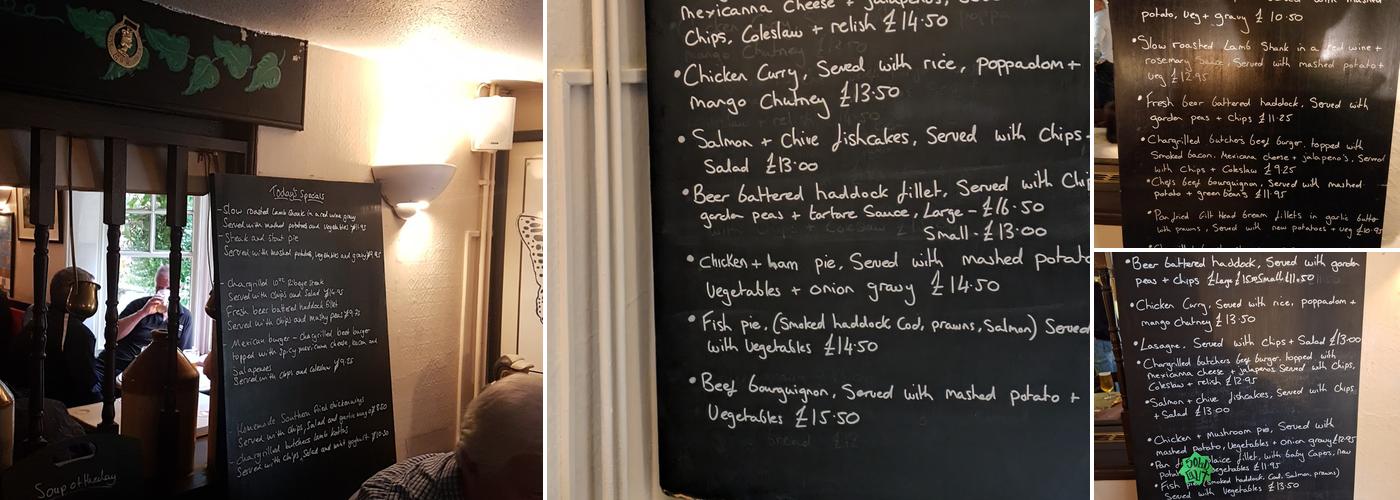 Today's Specials
- Slow roasted Lamb Shank in a red wine gravy
Served with mashed potatoes and vegetables £11.95
- Steak and stout pie
Served with mashed potatoes, vegetables and gravy £9.95
- Chargrilled 10oz Ribeye Steak
Served with chips and Salad £16.95
Fresh beer battered haddock fillet
Served with chips and mushy peas
- Mexican burger - Chargrilled beef burger
topped with Spicy mexicana cheese, bacon and
Jalapenos
Served with chips and coleslaw £9.25
- Homemade Southern fried chicken wings
Served with chips, Salad and garlic mayo £8.50
- Chargrilled butchers lamb koftas
Served with chips, Salad and mint yoghurt £10.50
Soup of the day
mexicanna cheese + jalapenos,
Chips, Coleslaw + relish £14.50
• Chicken Curry, Served with rice, poppadom +
mango Chutney £13.50
• Salmon + Chive fishcakes, Served with Chips +
Salad £13.00
• Beer battered haddock fillet, Served with Chi
garden peas + tartare Sauce, Large - £16.50
Small - £13.00
• Chicken + ham pie, Served with mashed potato
Vegetables + onion gravy £14.50
• Fish pie, (Smoked haddock Cod, prawns, Salmon) Served
with Vegetables £14.50
• Beef bourguignon, Served with mashed potato +
Vegetables £15.50
potato, veg + gravy £10.50
• Slow roasted Lamb Shank in a red wine +
rosemary Sauce, Served with mashed potato +
veg £12.95
• Fresh beer battered haddock, Served with
garden peas + chips £11.25
• Chargrilled butchers beef burger, topped with
Smoked bacon, Mexicana cheese + jalapeno's, Served
with chips + Coleslaw £9.25
• Chefs beef bourguignon, Served with mashed
potato + green beans £11.95
• Pan fried Gilt Head bream fillets in garlic butter
with prawns, Served with new potatoes + veg £10.95
• Beer battered haddock, Served with garden
peas + chips £Large £15.50 Small £11.50
• Chicken Curry, Served with rice, poppadom +
mango chutney £13.50
• Lasagne, Served with chips + Salad £13.00
• Chargrilled butchers beef burger, topped with
mexicanna cheese + jalapenos Served with Chips,
Coleslaw + relish £12.95
• Salmon + chive fishcakes, Served with Chips
+ Salad £13.00
• Chicken + Mushroom pie, Served with
mashed potato, Vegetables + onion gravy £12.95
• Pan plaice fillet, with baby Capers, new
vegetables £11.95
• Fish pie (Smoked haddock, Cod, Salmon, prawns)
Served with Vegetables £13.50